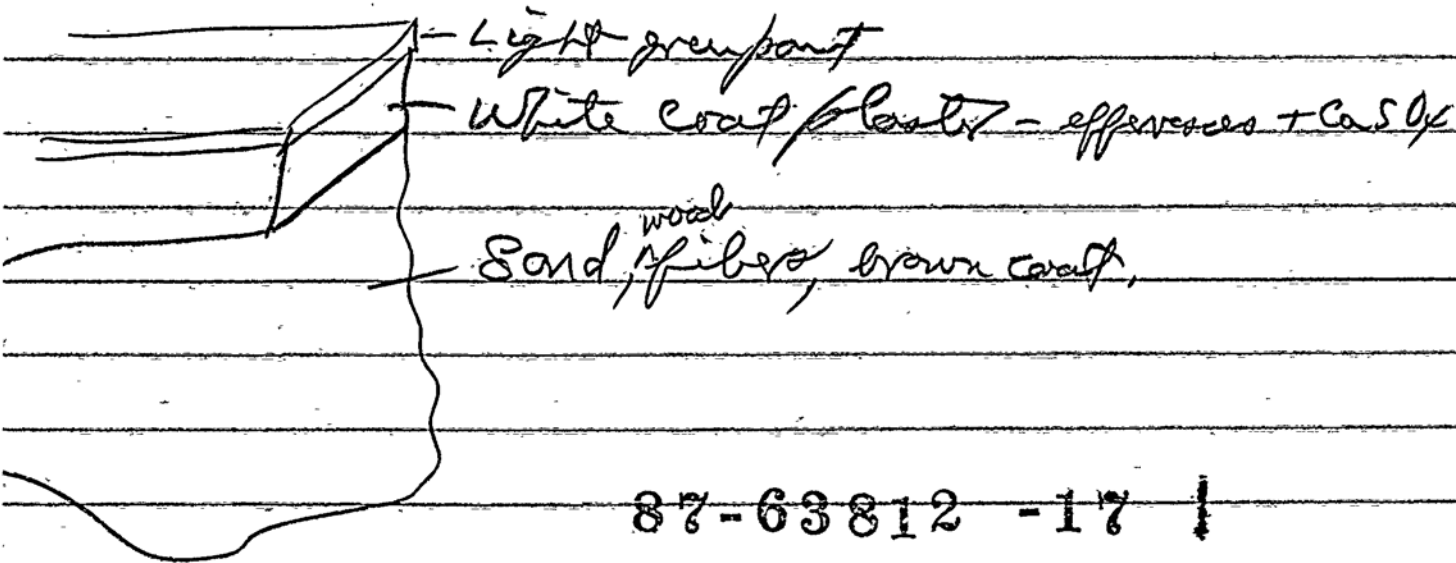 - Light green paint
- White coat plaster - effervesces + CaSO4
wood
- Sand, ^ fibers, brown coat.
87-63812 -17